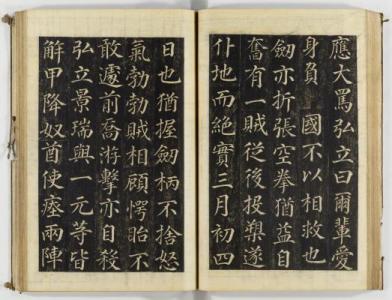 應大罵弘立曰爾輩愛
身負 國不以相救也
劒亦折張空拳猶益自
奮有一賊從後投槊遂
仆地而絶實三月初四
日也猶握劒柄不捨怒
氣勃勃賊相顧愕眙不
敢遽前喬游擊亦自殺
弘立景瑞與一元等皆
觧甲降奴酋使瘞兩陣